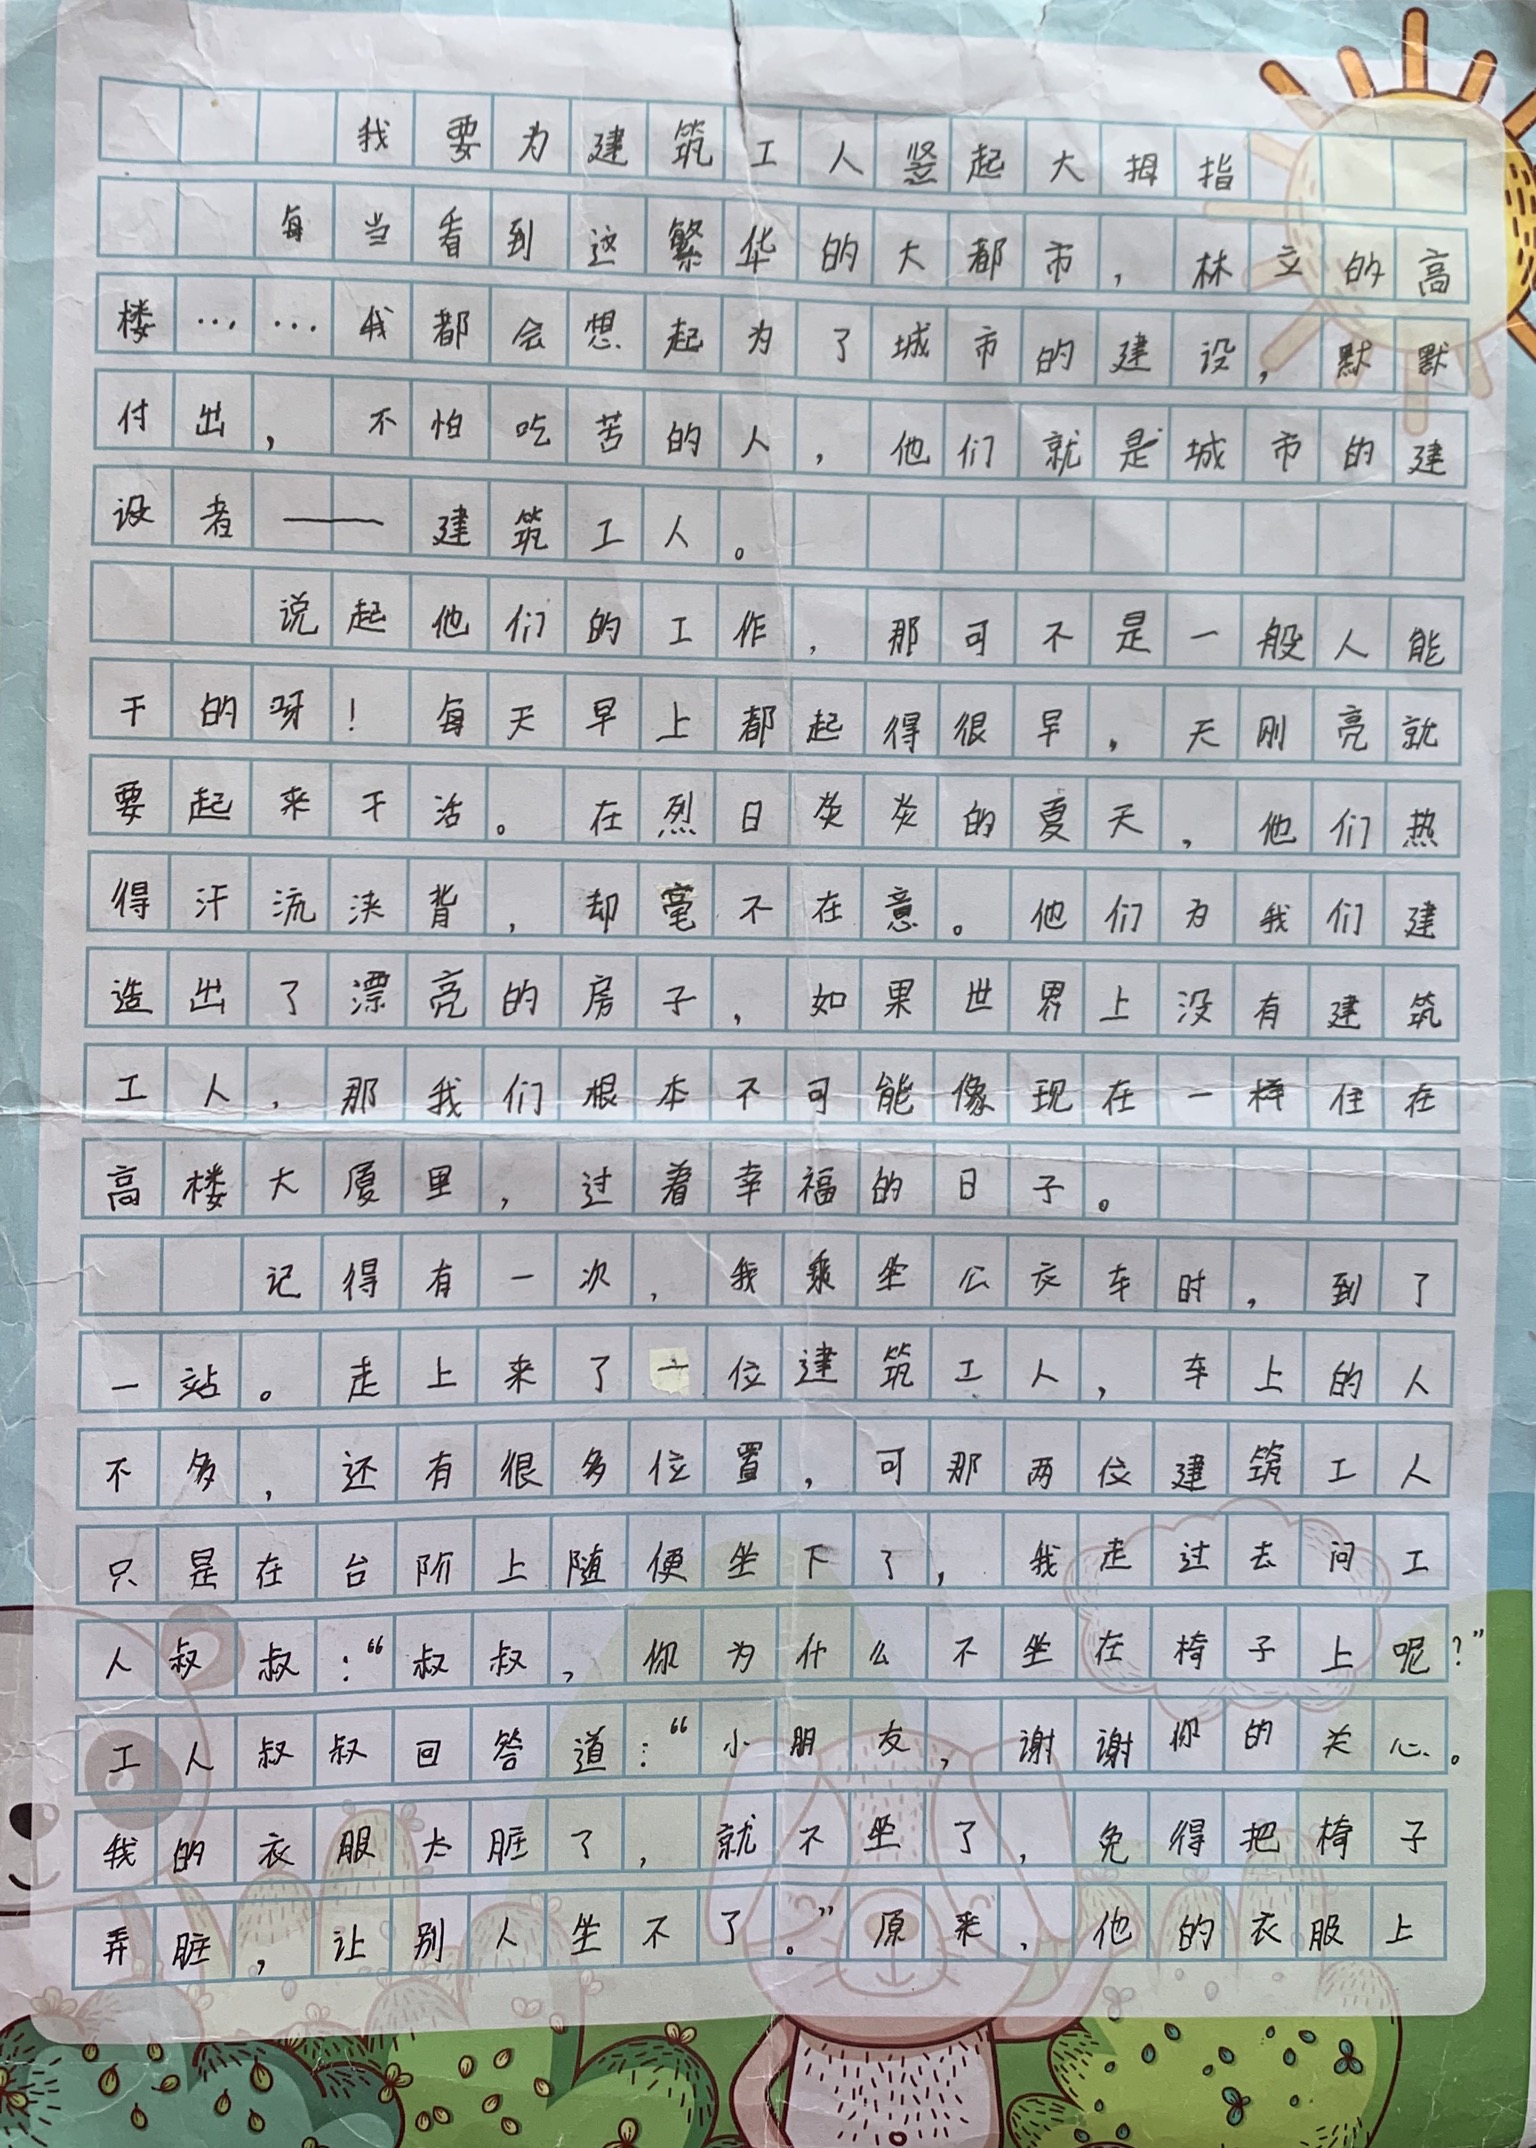 我要为建筑工人竖起大拇指
每当看到这繁华的大都市，林立的高
楼……我都会想起为了城市的建设，默默
付出，不怕吃苦的人，他们就是城市的建
设者——建筑工人。
说起他们的工作，那可不是一般人能
干的呀！每天早上都起得很早，天刚亮就
要起来干活。在烈日炎炎的夏天，他们热
得汗流浃背，却毫不在意。他们为我们建
造出了漂亮的房子，如果世界上没有建筑
工人，那我们根本不可能像现在一样住在
高楼大厦里，过着幸福的日子。
记得有一次，我乘坐公衣车时，到了
一站。走上来了一位建筑工人，车上的人
不多，还有很多位置，可那两位建筑工人
只是在台阶上随便坐下了，我走过去问工
人叔叔：“叔叔，你为什么不坐在椅子上呢？”
工人叔叔回答道：“小朋友，谢谢你的关心。
我的衣服太脏了，就不坐了，免得把椅子
弄脏，让别人坐不了。”原来，他的衣服上